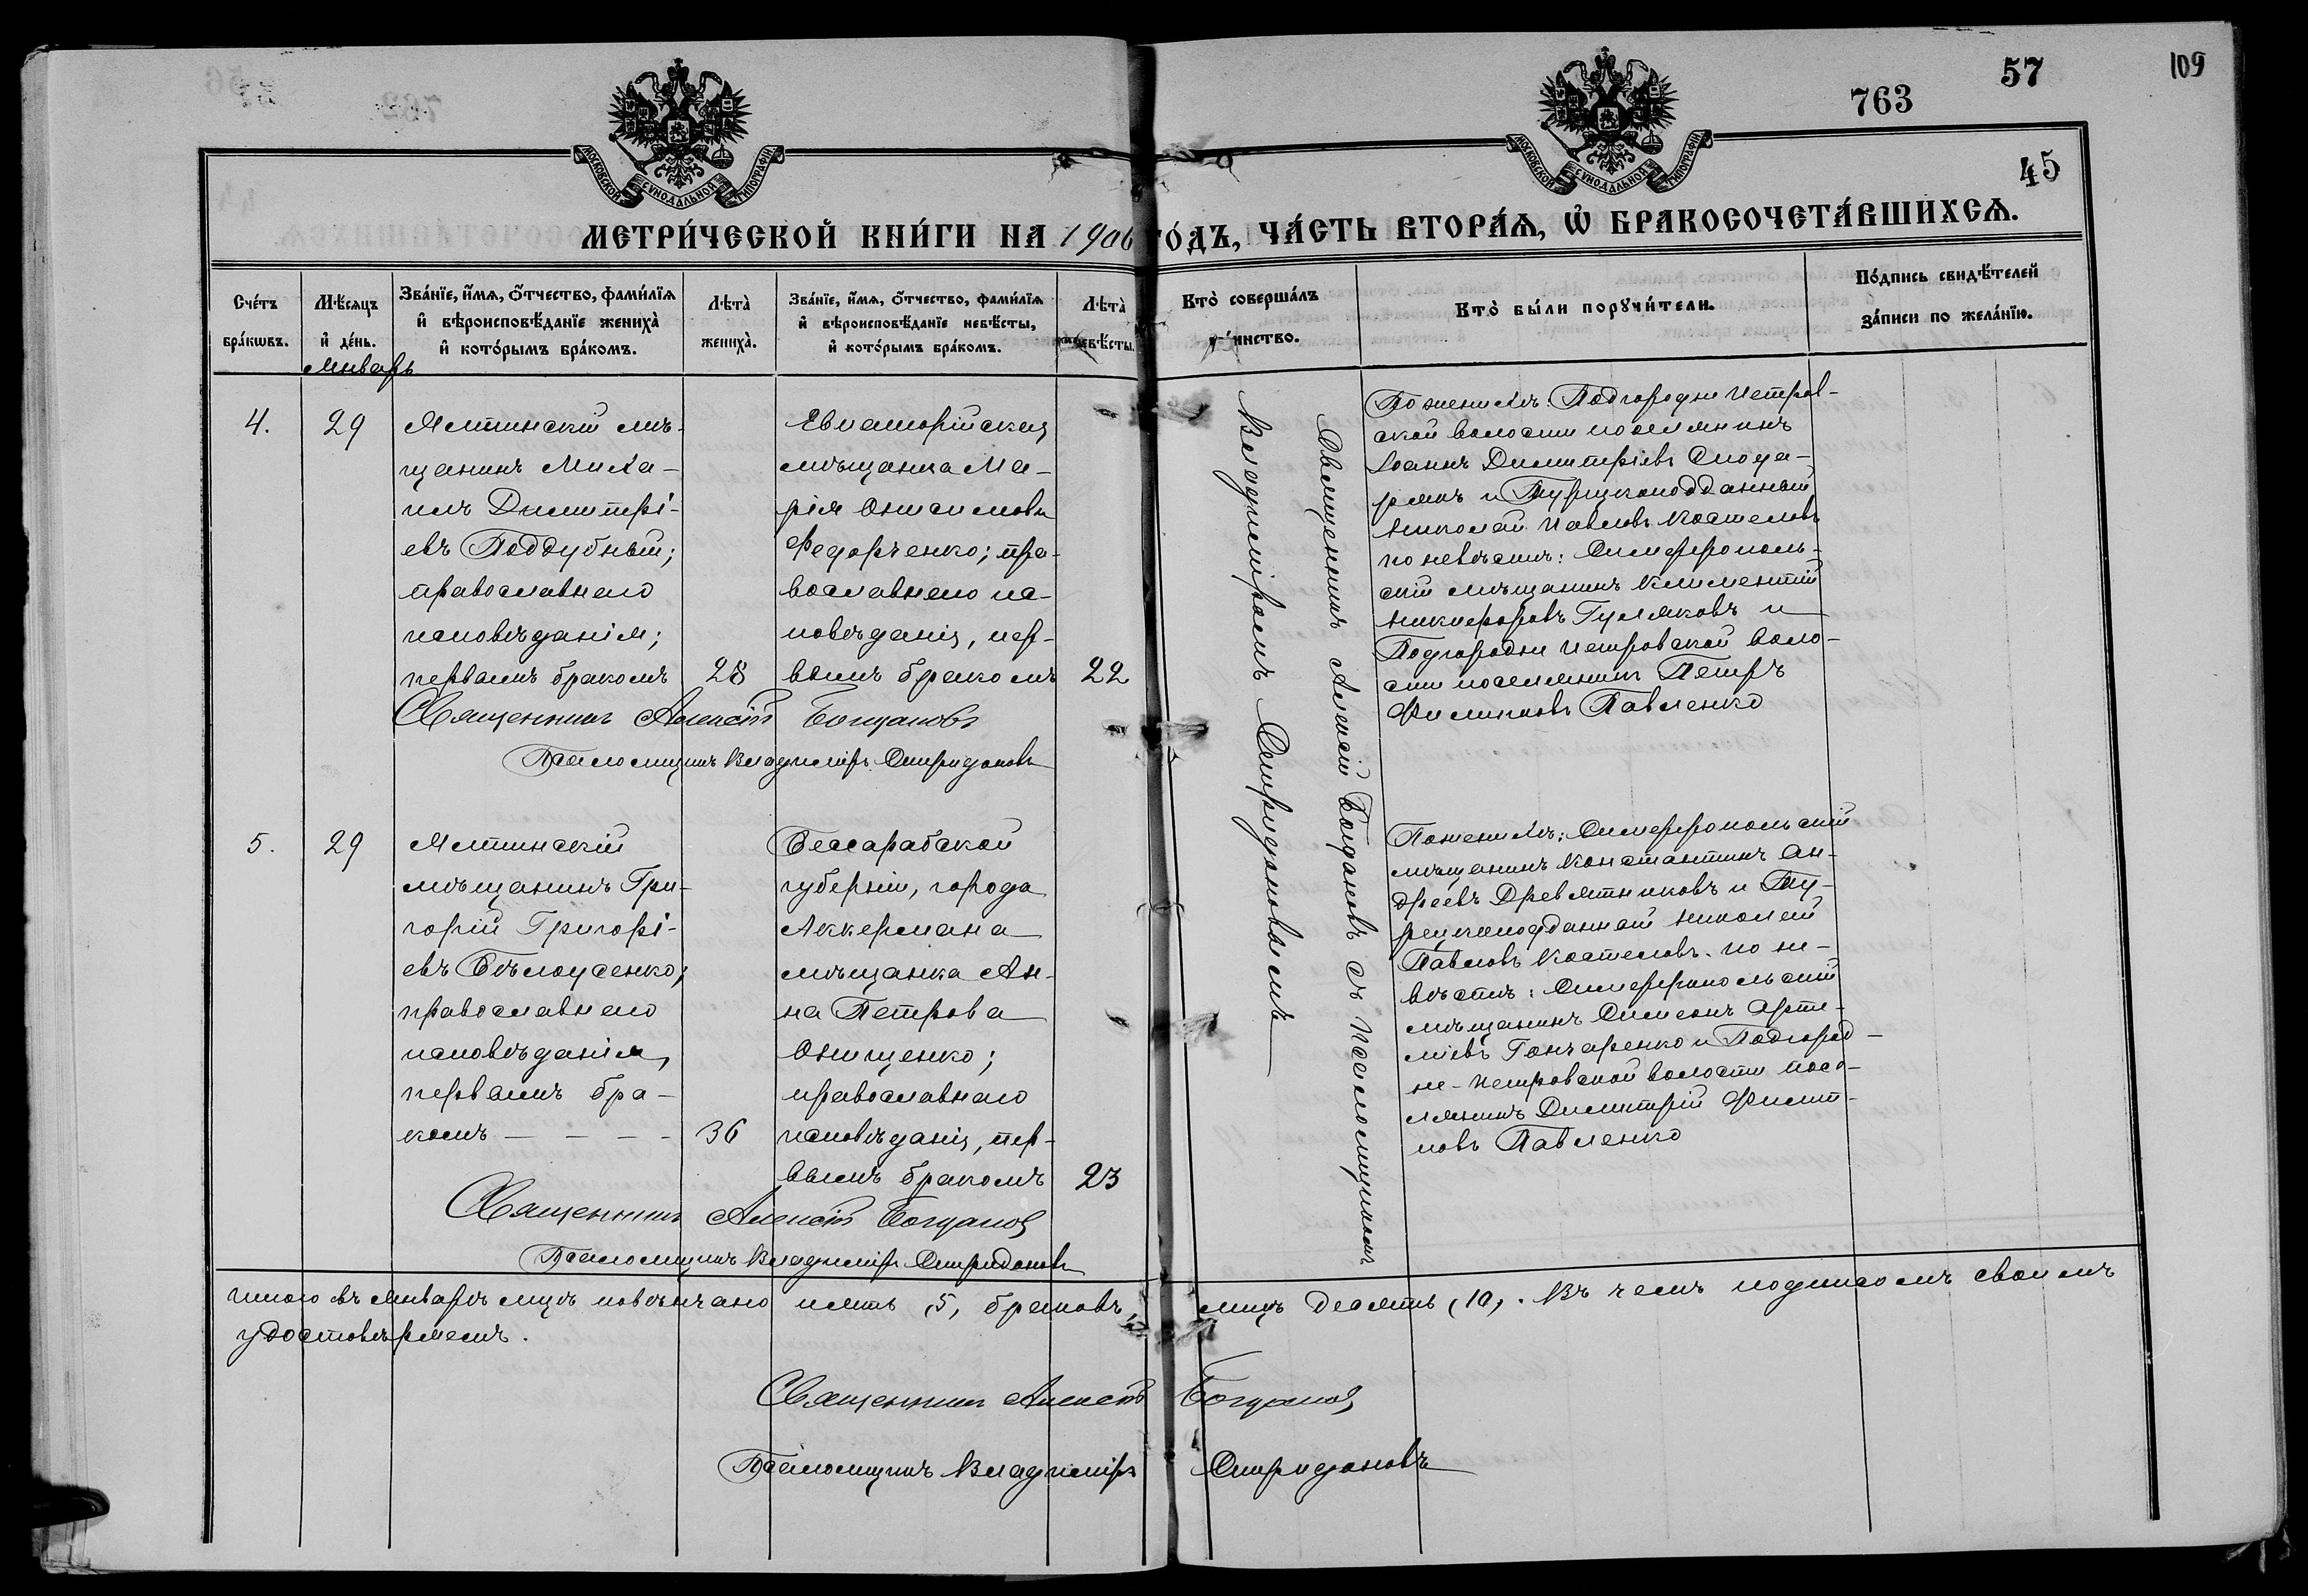 109
57
763
45
МОСКОВСКОЙ СѴНОДАЛЬНОЙ ТИПОГРАФІИ
МОСКОВСКОЙ СѴНОДАЛЬНОЙ ТИПОГРАФІИ
МЕТРИ́ЧЕСКОЙ КНИ́ГИ НА 1906 ГО́ДЪ, ЧА́СТЬ ВТОРА́Ѧ, Ѿ БРАКОСОЧЕТА́ВШИХСѦ.
Сче́тъ бра́кѡвъ.
Мѣ́сѧцъ и҆ де́нь.
Зва́нїе, и҆́мѧ, ѻ҆́тчество, фами́лїѧ и҆ вѣроисповѣ́данїе жениха̀ и҆ кото́рымъ бра́комъ.
Лѣта̀ жениха̀.
Зва́нїе, и҆́мѧ, ѻ҆́тчество, фами́лїѧ и҆ вѣроисповѣ́данїе невѣ́сты, и҆ кото́рымъ бра́комъ.
Лѣта̀ невѣ́сты.
Кто̀ соверша́лъ та́инство.
Кто̀ бы́ли порꙋчи́тели.
По́дпись свидѣ́телей за́писи по жела́нїю.
Январь
4.
29
Ялтинскій мѣ-
щанинъ Миха-
илъ Димитрі-
евъ Поддубный;
православнаго
исповѣданія;
первымъ бракомъ
28
Евпаторійская
мѣщанка Ма-
рія Онисимова
Федорченко; пра-
вославнаго ис-
повѣданія, пер-
вымъ бракомъ
22
Священникъ Алексій Богдановъ съ Псаломщикомъ
Владиміромъ Спиридоновымъ
По женихѣ: Подгородне Петров-
ской волости поселянинъ
Іоаннъ Димитріевъ
и Турецкоподданный
Николай Павловъ Костеловъ
по невѣстѣ: Симферополь-
скій мѣщанинъ Климентій
Никифоровъ Гуляковъ и
Подгородне Петровской воло-
сти поселянинъ Петръ
Филиповъ Павленко
Священникъ Алексій Богдановъ
Псаломщикъ Владиміръ Спиридоновъ
5.
29
Ялтинскій
мѣщанинъ Гри-
горій Григорі-
евъ Бѣлоусенко;
православнаго
исповѣданія,
первымъ бра-
комъ - - - -
36
Бессарабской
губерніи, города
Аккермана
мѣщанка Ан-
на Петрова
Онищенко;
православнаго
исповѣданія, пер-
вымъ бракомъ
23
По женихѣ: Симферопольскій
мѣщанинъ Константинъ Ан-
дреевъ Древятниковъ и Ту-
рецкоподданный Николай
Павловъ Костеловъ. по не-
вѣстѣ: Симферопольскій
мѣщанинъ Симеонъ Арте-
міевъ Гончаренко и Подгород-
не-Петровской волости посе-
лянинъ Димитрій Филип-
повъ Павленко
Священникъ Алексій Богдановъ
Псаломщикъ Владиміръ Спиридоновъ
Итого въ Январѣ мцѣ повѣнчано пять (5) браковъ, лицъ десять (10). Въ чемъ подписомъ своимъ
удостовѣряемъ.
Священникъ Алексій Богдановъ
Псаломщикъ Владиміръ Спиридоновъ